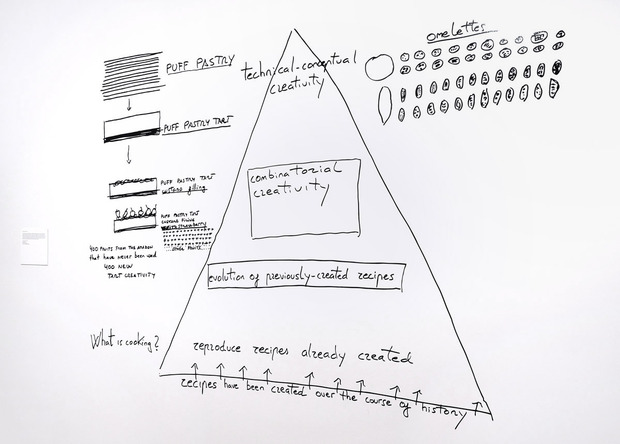 PUFF PASTRY
PUFF PASTRY TART
PUFF PASTRY TART
custard filling
PUFF PASTRY TART
CUSTARD FILLING
OTHER FRUITS
400 FRUITS FROM THE AMAZON
that have never been used
400 NEW
TART CREATIVITY
What is cooking?
technical-conceptual
creativity
combinatorial
creativity
evolution of previously-created recipes
reproduce recipes already created
recipes have been created over the course of history
omelettes